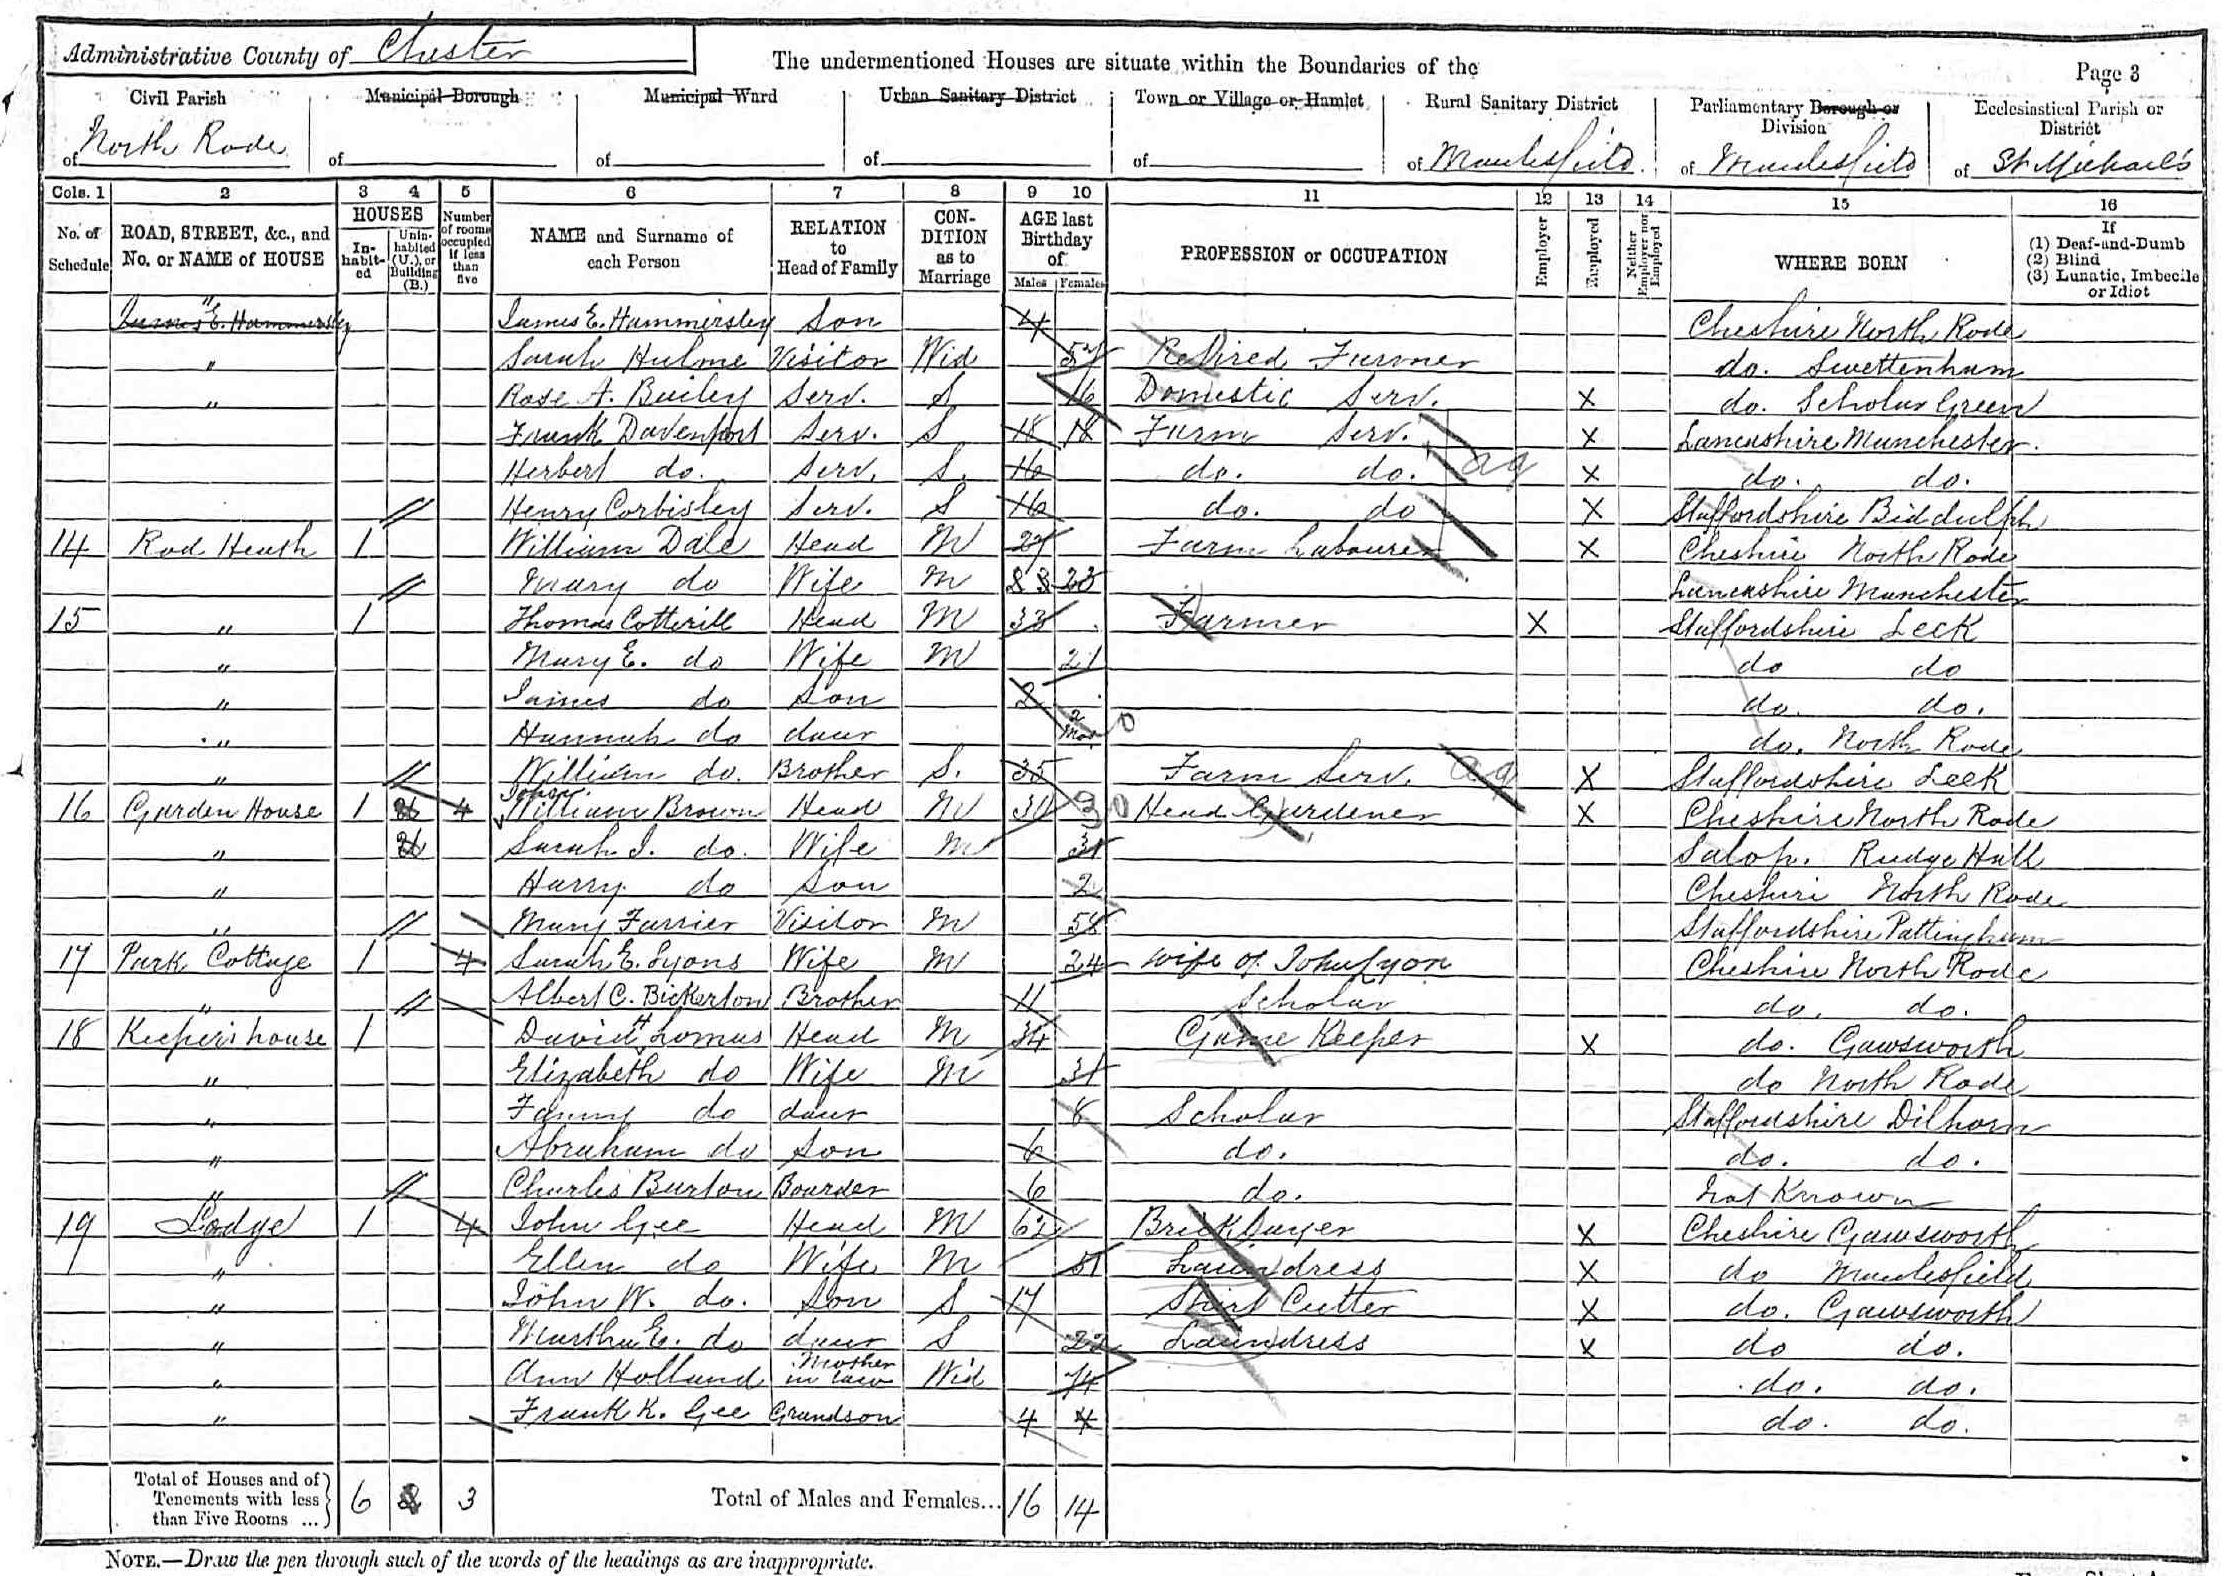 Administrative County of Chester
The undermentioned Houses are situate within the Boundaries of the
Page 3
Civil Parish of North Rode
Municipal Borough of
Municipal Ward of
Urban Sanitary District of
Town or Village or Hamlet of
Rural Sanitary District of Macclesfield
Parliamentary Borough or Division of Macclesfield
Ecclesiastical Parish or District of St Michael's
Cols. 1 2 3 4 5 6 7 8 9 10 11 12 13 14 15 16
No. of Schedule
ROAD, STREET, &c., and No. or NAME of HOUSE
HOUSES
In-habit-ed
Unin-habited (U.), or Building (B.)
Number of rooms occupied if less than five
NAME and Surname of each Person
RELATION to Head of Family
CON-DITION as to Marriage
AGE last Birthday of
Males Females
PROFESSION or OCCUPATION
Employer
Employed
Neither Employer nor Employed
WHERE BORN
If
(1) Deaf-and-Dumb
(2) Blind
(3) Lunatic, Imbecile or Idiot
James E. Hammersley " James E. Hammersley Son 4 Cheshire North Rode
" Sarah Hulme Visitor Wid Retired Farmer do. Swettenham
" Rose A. Bailey Serv. S 16 Domestic Serv. X do. Scholar Green
Frank Davenport Serv. S 18 18 Farm Serv. X Lancashire Manchester.
Herbert do. Serv. S. 16 do. do. ag X do. do.
Henry Corbisley Serv. S 16 do. do X Staffordshire Biddulph
14 Rod Heath 1 William Dale Head M 27 Farm Labourer X Cheshire North Rode
Mary do Wife M 23 23 Lancashire Manchester
15 " 1 Thomas Cotterill Head M 33 Farmer X Staffordshire Leek
" Mary E. do Wife M 21 do do
" James do Son 2 do. do.
" Hannah do daur 2 Mos. 0 do. North Rode
" William do. Brother S. 35 Farm Serv. ag X Staffordshire Leek
16 Garden House 1 4 John William Brown Head M 30 Head Gardener X Cheshire North Rode
" Sarah J. do. Wife M 31 Salop. Rudge Hall
" Harry do Son 2 Cheshire North Rode
" Mary Farrier Visitor M 58 Staffordshire Pattingham
17 Park Cottage 1 4 Sarah E. Lyons Wife M 24 Wife of John Lyon Cheshire North Rode
" Albert C. Bickerton Brother 11 Scholar do. do.
18 Keeper's house 1 David H Lomas Head M 34 Game Keeper X do. Gawsworth
" Elizabeth do Wife M 31 do North Rode
" Fanny do daur 8 Scholar Staffordshire Dilhorn
" Abraham do Son 6 do. do. do.
" Charles Burton Boarder 6 do. Not Known
19 Lodge 1 4 John Gee Head M 62 Brick layer X Cheshire Gawsworth
" Ellen do Wife M 51 Laundress X do Macclesfield
" John W. do. Son S 17 Shirt Cutter X do. Gawsworth
" Martha E. do daur S 22 Laundress X do do.
" Ann Holland Mother in law Wid 74 do. do.
" Frank K. Gee Grandson 4 4 do. do.
Total of Houses and of Tenements with less than Five Rooms ... 6 3
Total of Males and Females... 16 14
NOTE.—Draw the pen through such of the words of the headings as are inappropriate.